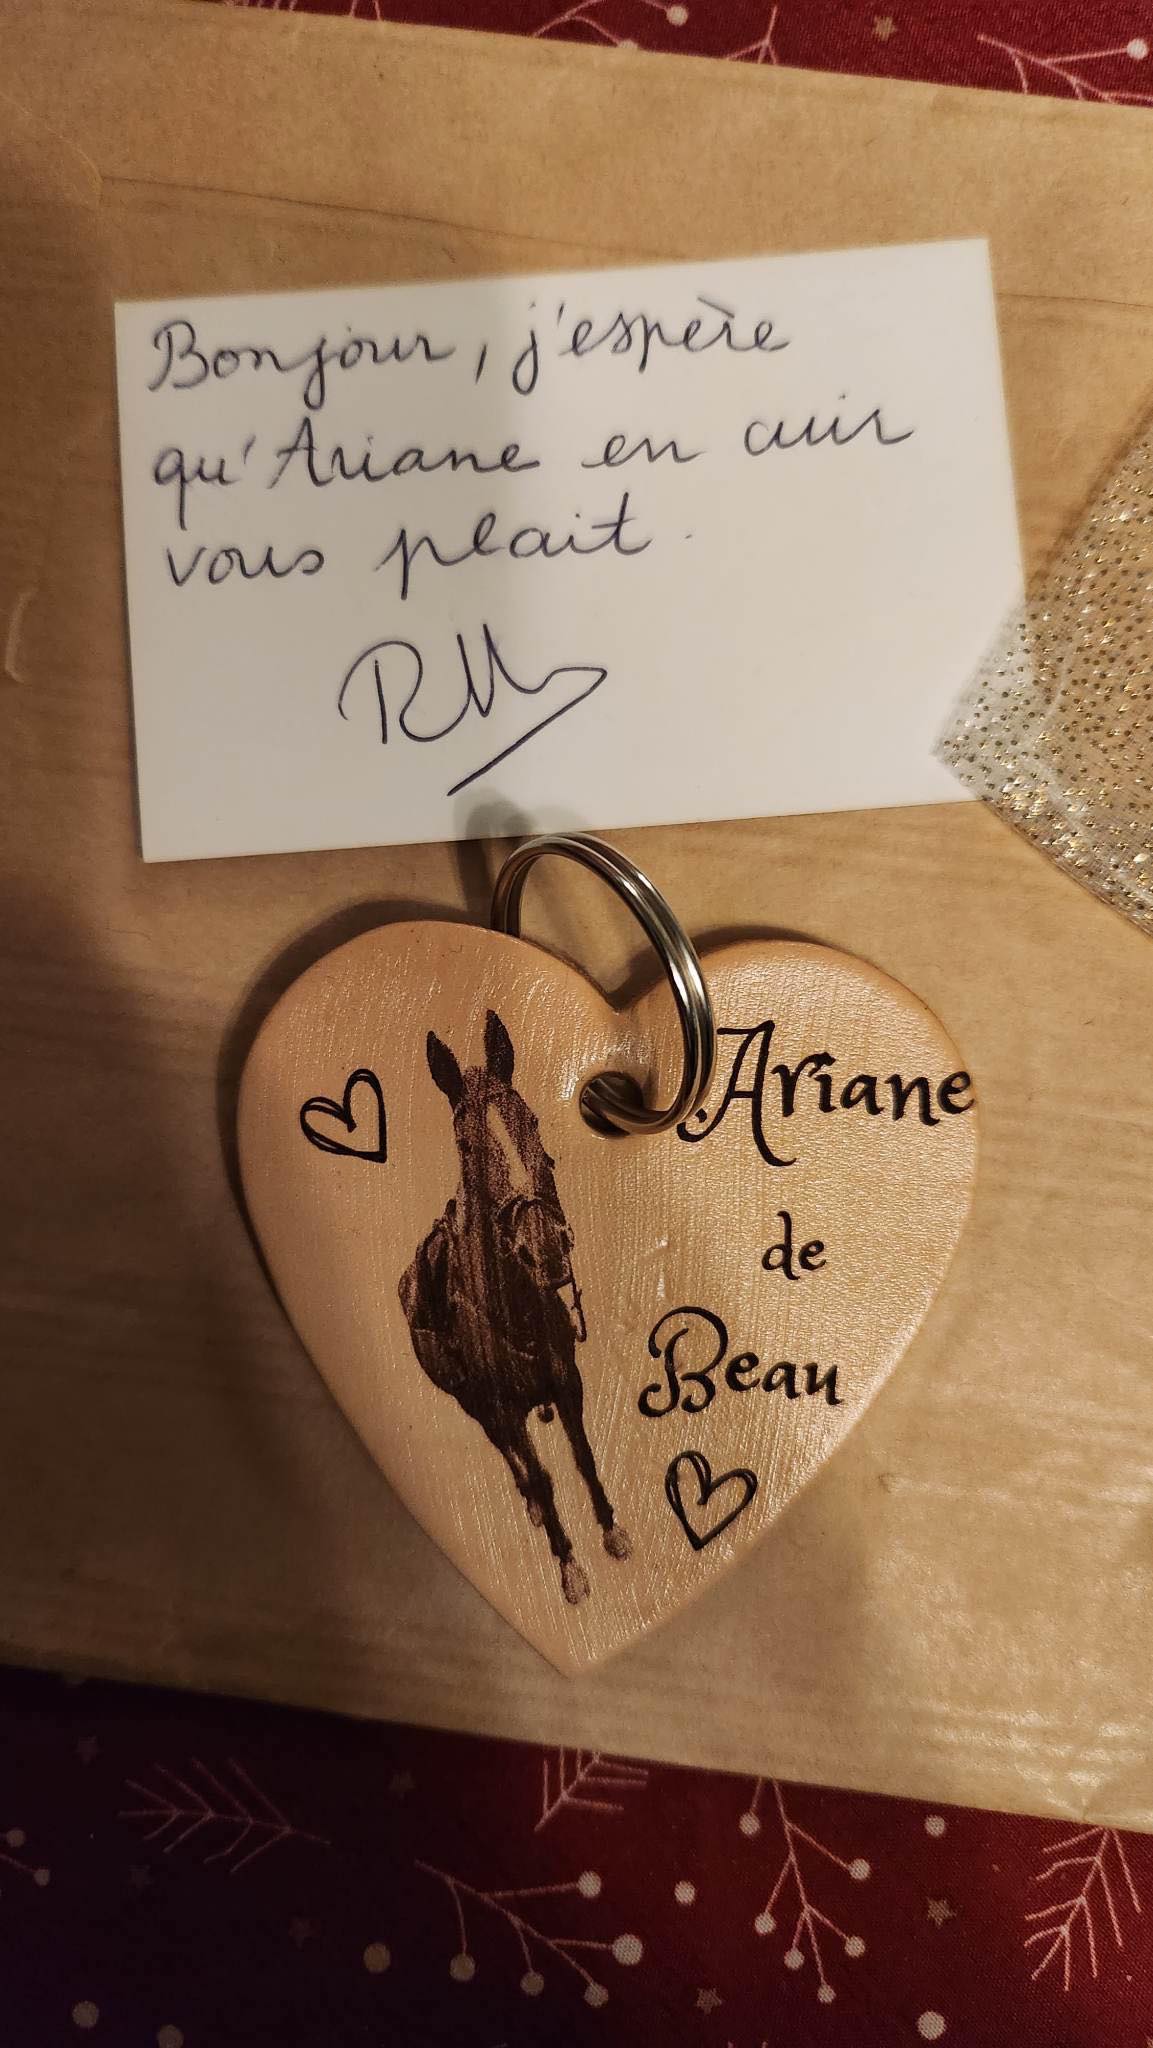 Bonjour, j'espère
qu'Ariane en cuir
vous plait.
RM
Ariane
de
Beau